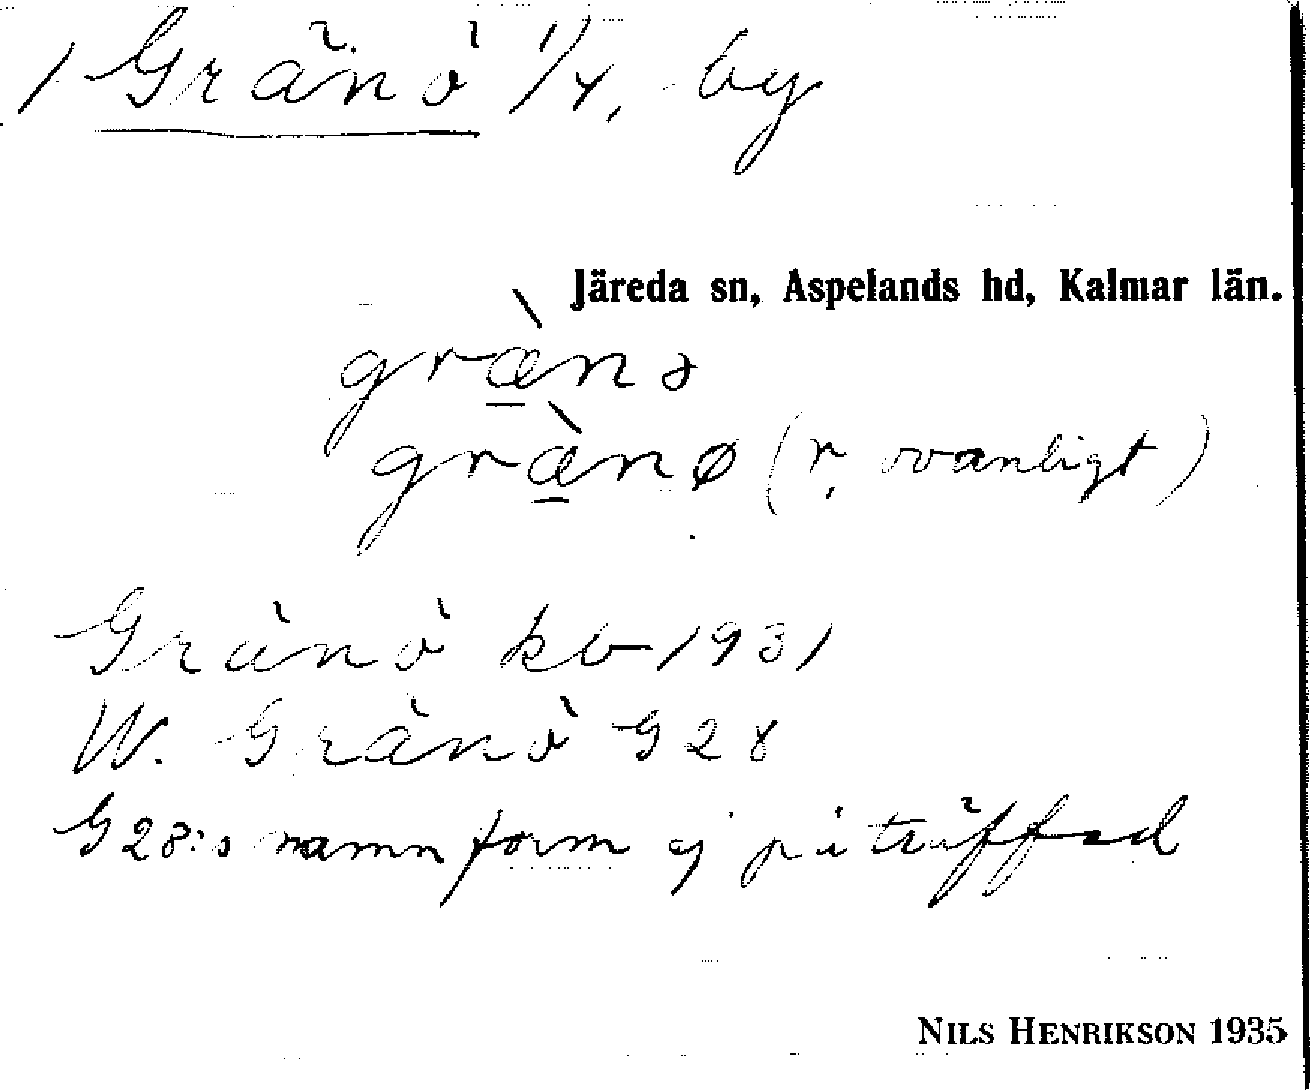 1 Gränö 1/4, by
Järeda sn, Aspelands hd, Kalmar län.
græ̠̀nə
græ̠̀nø (r, ovanligt)
Gränö kb 1931
W. Gränö G 28
G 28:s namnform ej påträffad
NILS HENRIKSON 1935